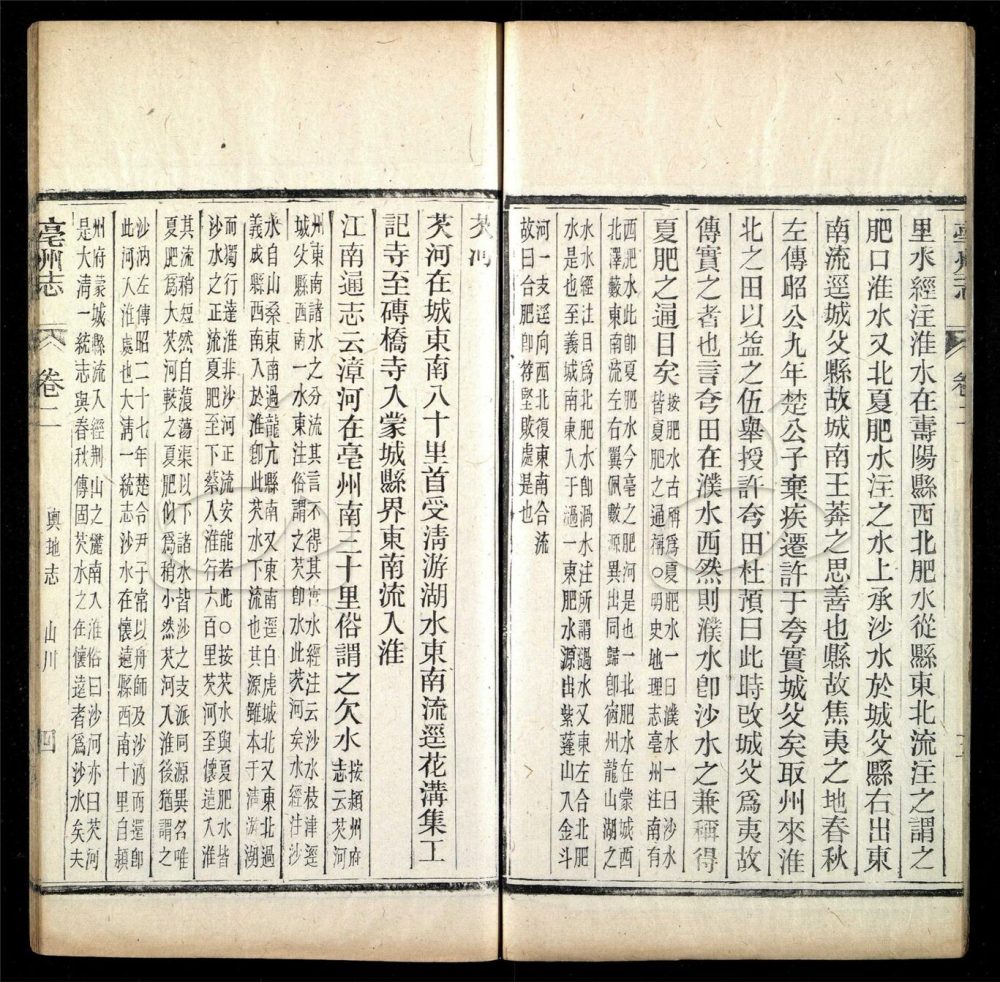 里水經注淮水在壽陽縣西北肥水從縣東北流注之謂之
肥口淮水又北夏肥水注之水上承沙水於城父縣右出東
南流逕城父縣故城南王莽之思善也縣故焦夷之地春秋
左傳昭公九年楚公子棄疾遷許于夸實城父矣取州來淮
北之田以益之伍舉授許夸田杜預曰此時改城父爲夷故
傳實之者也言夸田在濮水西然則濮水卽沙水之兼稱得
夏肥之通目矣
按肥水古稱爲夏肥水一曰濮水一曰沙水
皆夏肥之通稱○明史地理志亳州注南有
西肥水此卽夏肥水今亳之肥河是也一北肥水在蒙城西
北澤藪東南流左右翼佩數源異出同歸卽宿州龍山湖之
水水經注目爲北肥水卽渦水注所謂過水又東左合北肥
水是也至義城南東入于過一東肥水源出紫蓬山入金斗
河一支逕向西北復東南合流
故曰合肥卽符堅敗處是也
亳州志
卷二
芡河
芡河在城東南八十里首受清游湖水東南流逕花溝集工
記寺至磚橋寺入蒙城縣界東南流入淮
江南通志云漳河在亳州南三十里俗謂之欠水
按潁州府
志云芡河
州東南諸水之分流其言不得其
水經注云沙水枝津逕
城父縣西南一水東注俗謂之芡卽水此芡河矣水經注沙
水自山桑東南過龍亢縣南又東南逕白虎城北又東北過
義成縣西南入於淮卽此芡水下流也其源雖本于清游湖
而獨行達淮非沙河正流安能若此○按芡水與夏肥水皆
沙水之正流夏肥至下蔡入淮行六百里芡河至懷遠入淮
其流稍短然自蒗蕩渠以下諸水皆沙之支派同源異名唯
夏肥爲大芡河較之夏肥似爲稍小然芡河入淮後猶謂之
沙汭左傳昭二十七年楚令尹子常以舟師及沙汭而還卽
此河入淮處也大清一統志沙水在懷遠縣西南十里自潁
州府蒙城縣流入經荆山之麓南入淮俗曰沙河亦曰芡河
是大清一統志與春秋傳固芡水之在懷遠者爲沙水矣夫
亳州志
卷二
輿地志
山川
四